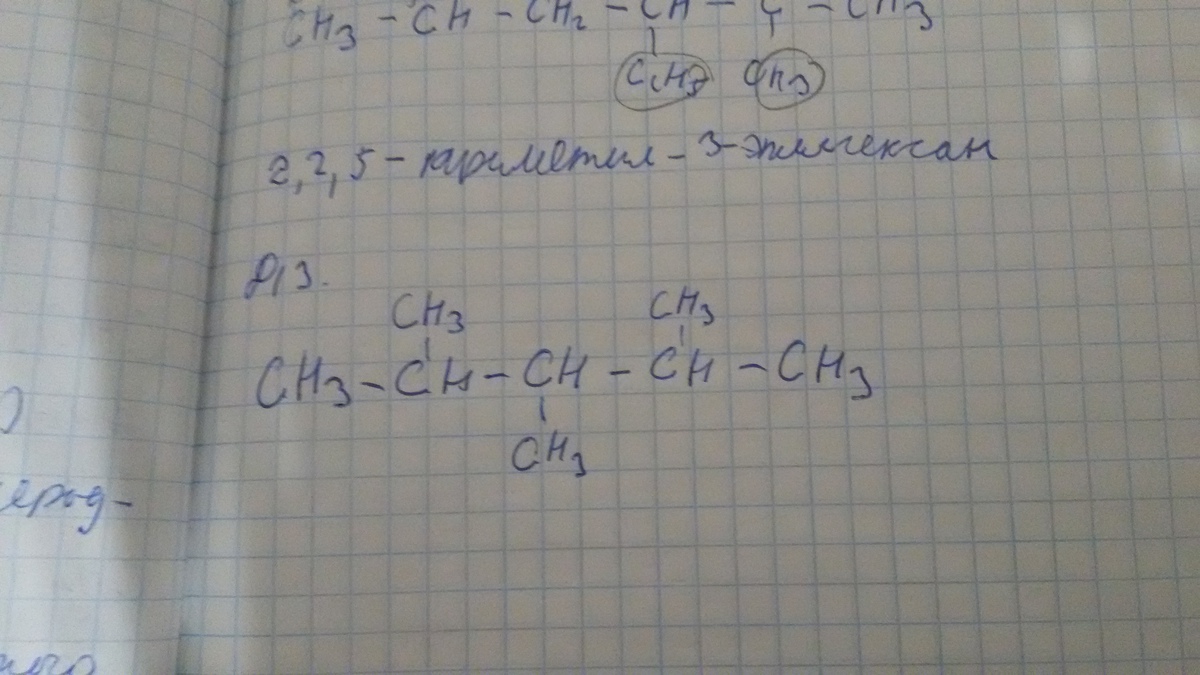 CH3 - CH - CH2 - CH - C - CH3
C2H5 CH3
2,2,5 - триметил - 3-этилгексан
Д/З.
CH3 CH3
CH3 - CH - CH - CH - CH3
CH3
ерод-
ного